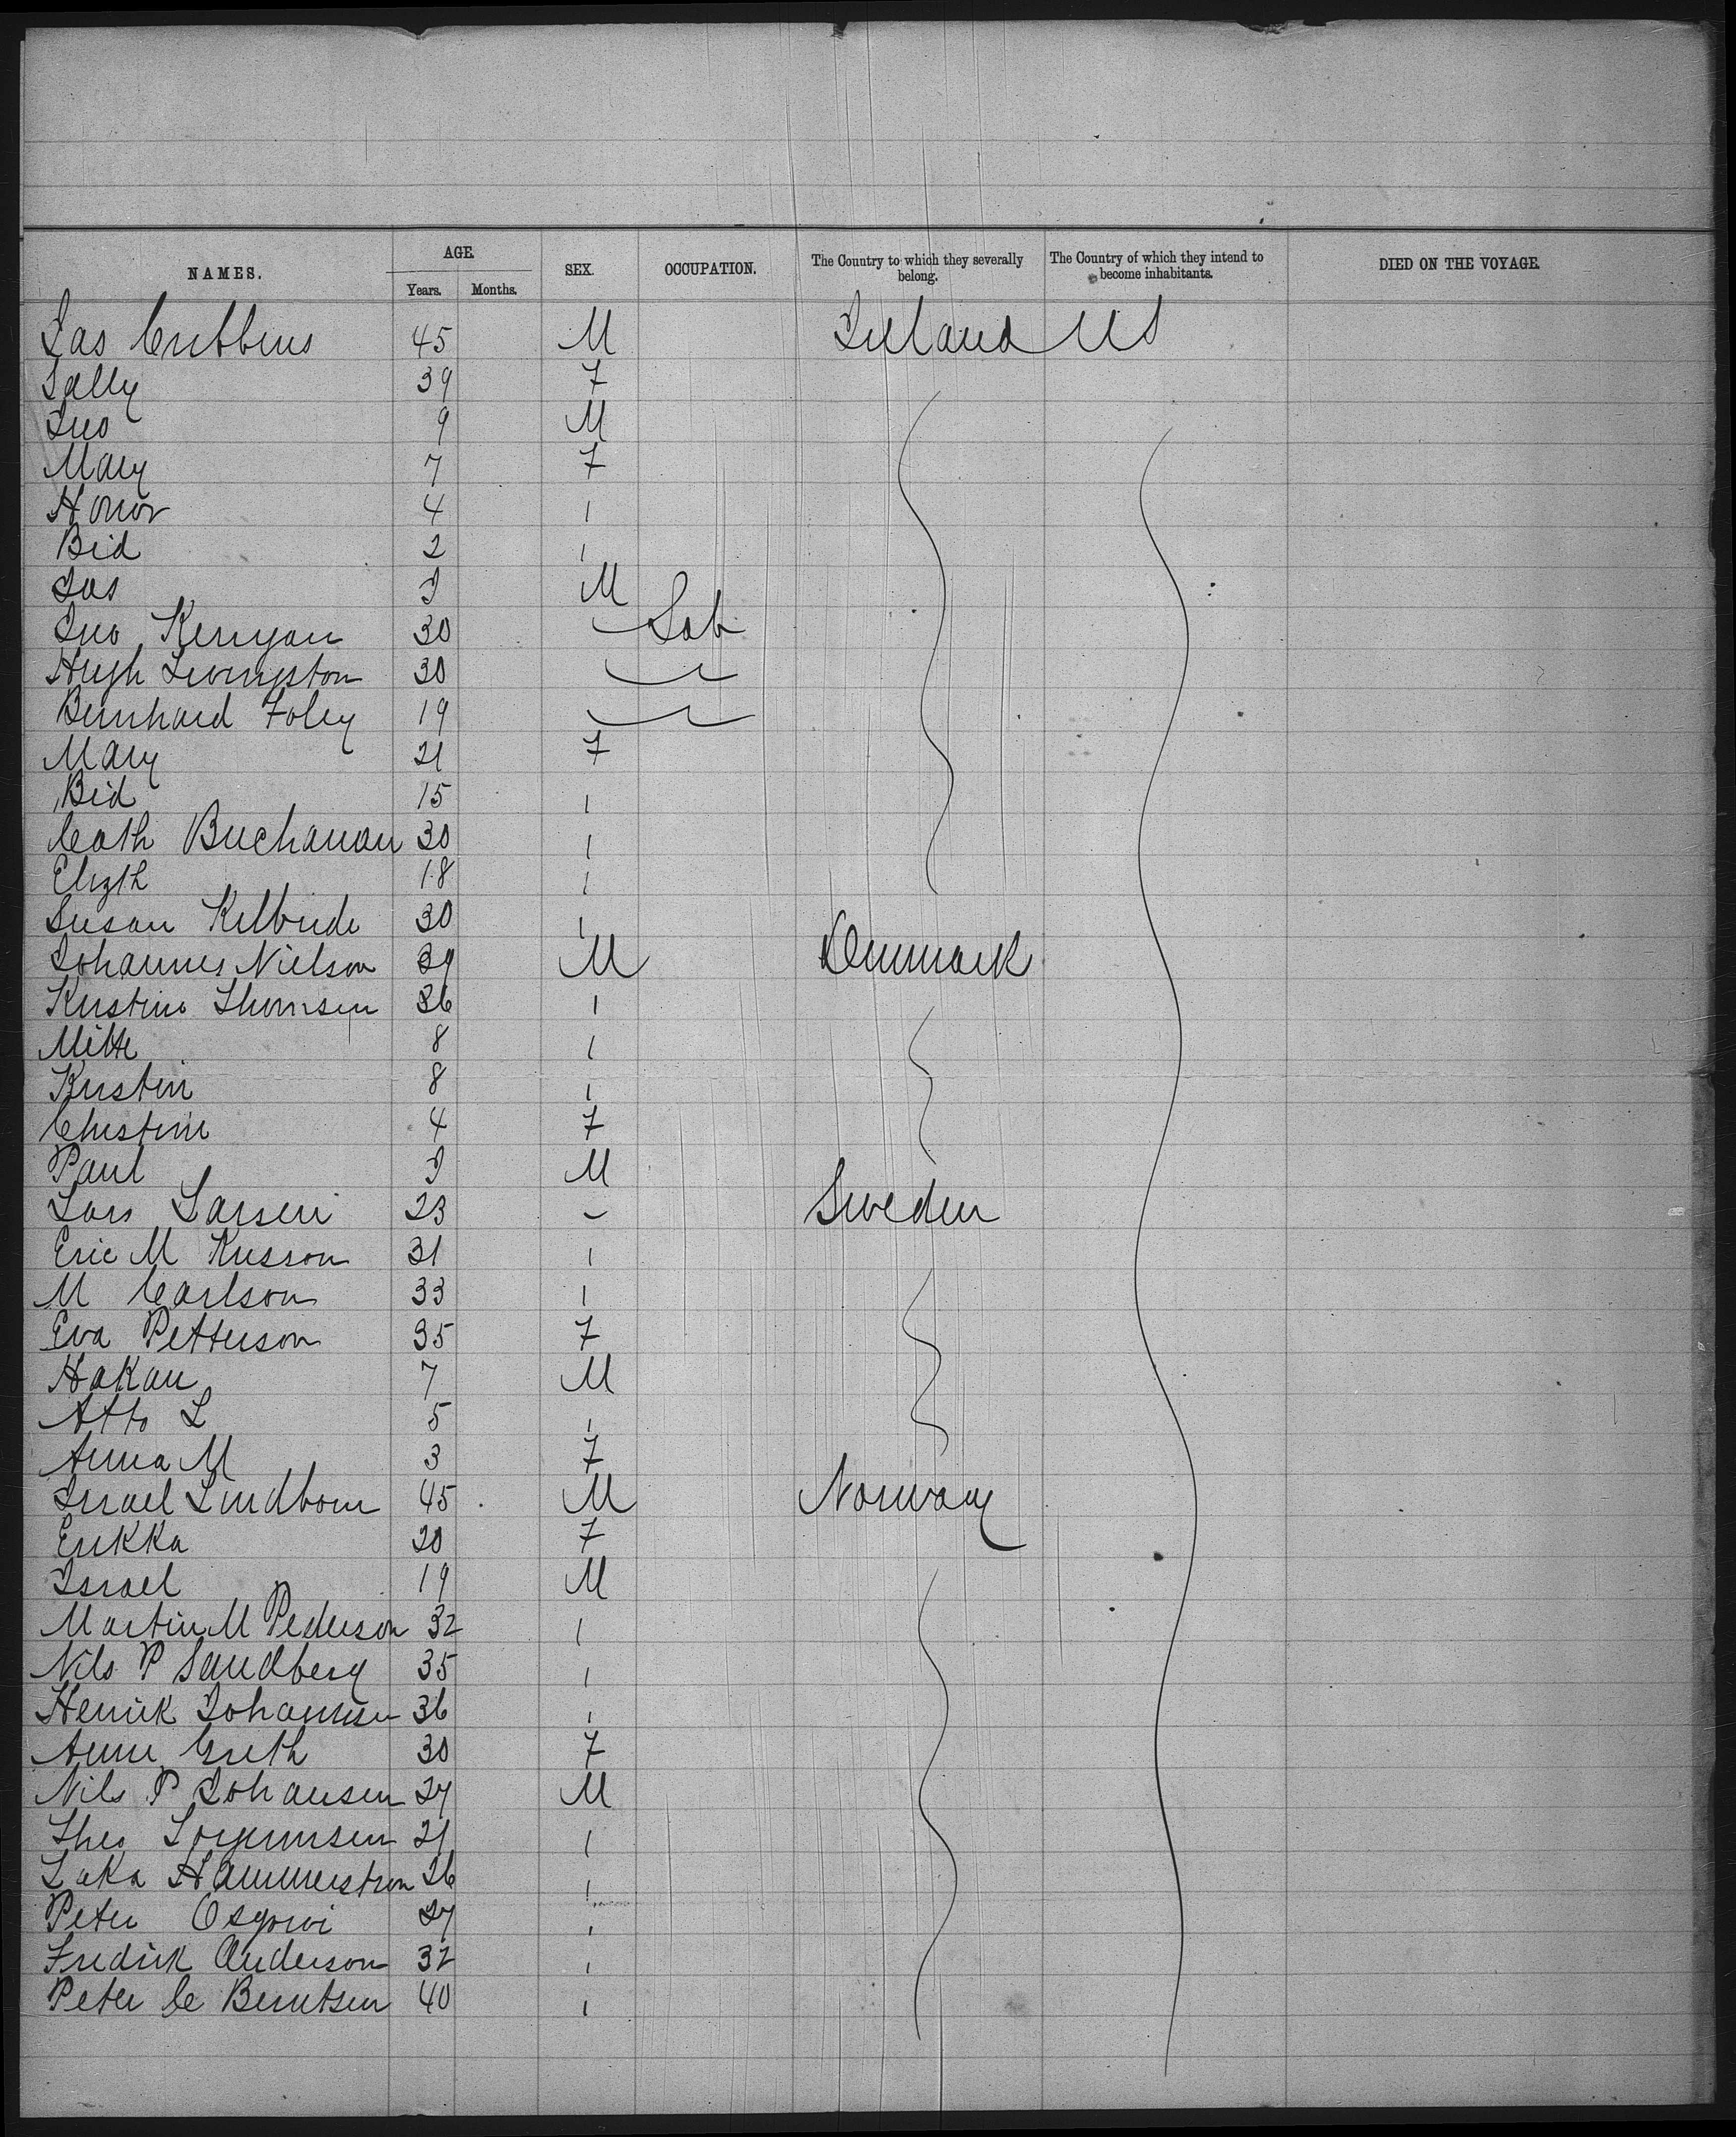 NAMES. AGE. SEX. OCCUPATION. The Country to which they severally belong. The Country of which they intend to become inhabitants. DIED ON THE VOYAGE.
Years. Months.
Jas Cribbins 45 M Ireland US
Sally 39 F
Jno 9 M
Mary 7 F
Honor 4 1
Bid 2 1
Jas 2 M
Jno Kenyon 30 Lab
Hugh Livingston 30
Bernhard Foley 19
Mary 21 F
Bid 15 1
Cath Buchanan 30 1
Elizth 18 1
Susan Kilbride 30 1
Johannes Nielson 39 M Denmark
Kristine Thomsen 36 1
Mette 8 1
Kristin 8 1
Christine 4 F
Paul 2 M
Lars Larsen 23 Sweden
Eric M 31 1
M Carlson 33 1
Eva Petterson 35 F
Hakan 7 M
Atto L 5 1
Anna M 3 F
Israel Lindbom 45 M Norway
Erikka 20 F
Israel 19 M
Martin M Pederson 32 1
Nils P Sandberg 35 1
Henrik Johannsen 36 1
Anne Greth 30 F
Nils P Johansen 27 M
Theo Jorgennsen 21 1
Hammerstrom 26 1
Peter 27 1
Fredrik Anderson 32 1
Peter C Berntsen 40 1